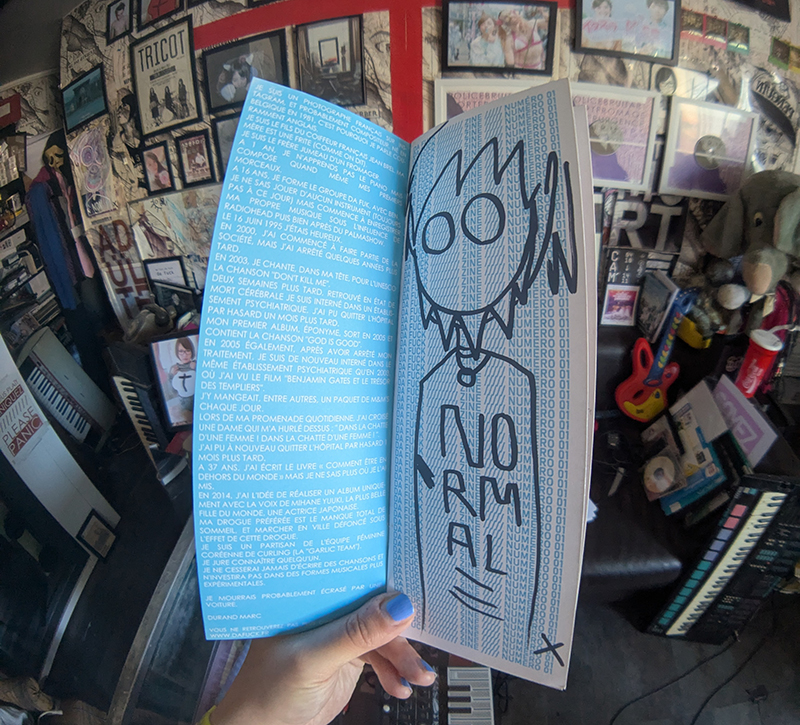 JE SUIS UN PHOTOGRAPHE FRANÇAIS
TAGRAM, ET PROBABLEMENT COMPOSITEUR,
BELGIQUE, EN 1981. C'EST POURQUOI JE PARLE
RAMMENT ANGLAIS.
JE SUIS LE FILS DU COIFFEUR FRANÇAIS JEAN EPEL. MA
MÈRE EST UNE FRITE (COMME ON DIT).
JE SUIS LE FRÈRE JUMEAU D'UN FROMAGER.
A 1 AN, JE N'APPRENDS PAS LE PIANO, MAIS
COMPOSE QUAND MÊME MES PREMIERS
MORCEAUX.
A 16 ANS, JE FORME LE GROUPE DA FLIK, AVEC BEN
JE NE SAIS JOUER D'AUCUN INSTRUMENT (TOUJOURS
PAS À CE JOUR) MAIS COMMENCE À ENREGISTRER
MA PROPRE MUSIQUE SOUS L'INFLUENCE DE
RADIOHEAD PUIS BIEN APRÈS DU PALMASHOW.
LE 15 JUIN 1995 J'ÉTAIS HEUREUX.
EN 2000, J'AI COMMENCÉ À FAIRE PARTIE DE LA
SOCIÉTÉ, MAIS J'AI ARRÊTÉ QUELQUES ANNÉES PLUS
TARD.
EN 2003, JE CHANTE, DANS MA TÊTE, POUR L'UNESCO
LA CHANSON "DON'T KILL ME"
DEUX SEMAINES PLUS TARD, RETROUVÉ EN ÉTAT DE
MORT CÉRÉBRALE JE SUIS INTERNÉ DANS UN ÉTABLIS-
SEMENT PSYCHIATRIQUE, J'AI PU QUITTER L'HÔPITAL
PAR HASARD UN MOIS PLUS TARD.
MON PREMIER ALBUM, ÉPONYME, SORT EN 2005 ET
CONTIENT LA CHANSON "GOD IS GOOD".
EN 2005 ÉGALEMENT, APRÈS AVOIR ARRÊTÉ MON
TRAITEMENT, JE SUIS DE NOUVEAU INTERNÉ DANS LE
MÊME ÉTABLISSEMENT PSYCHIATRIQUE QU'EN 2003
OÙ J'AI VU LE FILM "BENJAMIN GATES ET LE TRÉSOR
DES TEMPLIERS".
J'Y MANGEAIT, ENTRE AUTRES, UN PAQUET DE
CHAQUE JOUR.
LORS DE MA PROMENADE QUOTIDIENNE, J'AI CROISÉ
UNE DAME QUI M'A HURLÉ DESSUS : "DANS LA CHATTE
D'UNE FEMME ! DANS LA CHATTE D'UNE FEMME !"
J'AI PU À NOUVEAU QUITTER L'HÔPITAL PAR HASARD
MOIS PLUS TARD.
A 37 ANS, J'AI ÉCRIT LE LIVRE « COMMENT ÊTRE EN
DEHORS DU MONDE » MAIS JE NE SAIS PLUS OÙ JE L'AI
MIS.
EN 2014, J'AI L'IDÉE DE RÉALISER UN ALBUM UNIQUE-
MENT AVEC LA VOIX DE MIHANE YUUKI, LA PLUS BELLE
FILLE DU MONDE, UNE ACTRICE JAPONAISE.
MA DROGUE PRÉFÉRÉE EST LE MANQUE TOTAL DE
SOMMEIL, ET MARCHER EN VILLE DÉFONCÉ SOUS
L'EFFET DE CETTE DROGUE.
JE SUIS UN PARTISAN DE L'ÉQUIPE FÉMININE
CORÉENNE DE CURLING (LA "GARLIC TEAM").
JE JURE CONNAÎTRE QUELQU'UN.
JE NE CESSERAI JAMAIS D'ÉCRIRE DES CHANSONS ET
N'INVESTIRA PAS DANS DES FORMES MUSICALES PLUS
EXPÉRIMENTALES.
JE MOURRAIS PROBABLEMENT ÉCRASÉ PAR UNE
VOITURE.
DURAND MARC
VOUS NE RETROUVEREZ PAS
WWW.DAFUCK.
NUMÉRO 001
NO
RM
AL
TRICOT
PLEASE
PANIC
AD
ULT